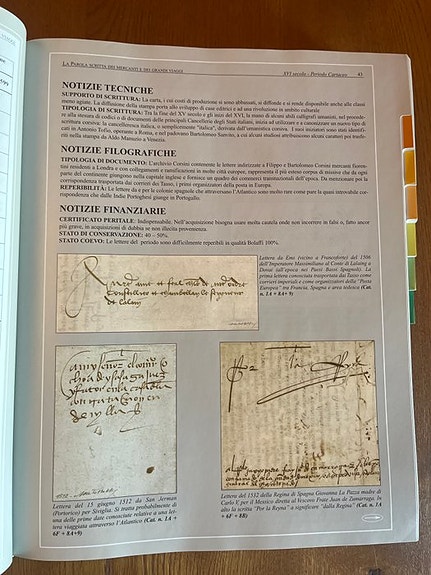 LA PAROLA SCRITTA DEI MERCANTI E DEI GRANDI VIAGGI
XVI secolo - Periodo Cartaceo 43
NOTIZIE TECNICHE
SUPPORTO DI SCRITTURA: La carta, i cui costi di produzione si sono abbassati, si diffonde e si rende disponibile anche alle classi
meno agiate. La diffusione della stampa porta allo sviluppo di case editrici e ad una rivoluzione in ambito culturale
TIPOLOGIA DI SCRITTURA: Tra la fine del XV secolo e gli inizi del XVI, la mano di alcuni abili calligrafi umanisti, nel procede-
re alla stesura di codici o di documenti delle principali Cancellerie degli Stati italiani, inizia ad utilizzare e a canonizzare un nuovo tipo di
scrittura corsiva: la cancelleresca italica, o semplicemente "italica", derivata dall'umanistica corsiva. I suoi iniziatori sono stati identifi-
cati in Antonio Tofio, operante a Roma, e nel padovano Bartolomeo Sanvito, a cui alcuni studiosi attribuiscono alcuni caratteri poi tradot-
ti nella stampa da Aldo Manuzio a Venezia.
NOTIZIE FILOGRAFICHE
TIPOLOGIA DI DOCUMENTO: L'archivio Corsini contenente le lettere indirizzate a Filippo e Bartolomeo Corsini mercanti fioren-
tini residenti a Londra e con collegamenti e ramificazioni in molte città europee, rappresenta il più esteso corpus di missive da ogni
parte del continente giungono nella capitale inglese e fornisce un quadro dei commerci internazionali dell'epoca. Da menzionare per la
corrispondenza trasportata dai corrieri dei Tasso, i primi organizzatori della posta in Europa.
REPERIBILITÀ: Le lettere da e per le colonie spagnole che attraversano l'Atlantico sono molto rare come pure la quasi introvabile cor-
rispondenza che dalle Indie Portoghesi giunge in Portogallo.
NOTIZIE FINANZIARIE
CERTIFICATO PERITALE: Indispensabile. Nell'acquisizione bisogna usare molta cautela onde non incorrere in falsi o, fatto ancor
più grave, in acquisizioni di dubbia se non illecita provenienza.
STATO DI CONSERVAZIONE: 40 – 50%.
STATO COEVO: Le lettere del periodo sono difficilmente reperibili in qualità Bolaffi 100%
Lettera da Ems (vicino a Francoforte) del 1506
dell'Imperatore Massimiliano al Conte di Lalaing a
Douai (all'epoca nei Paesi Bassi Spagnoli). La
prima lettera conosciuta trasportata dai Tasso come
corrieri imperiali e come organizzatori della "Posta
Europea" tra Francia, Spagna e area tedesca (Cat.
n. 1A + 8A+9)
Lettera del 15 giugno 1512 da San Jerman
(Portorico) per Siviglia. Si tratta probabilmente di
una delle prime date conosciute relative a una let-
tera viaggiata attraverso l'Atlantico (Cat. n. 1A +
6F + 8A+9)
Lettera del 1532 della Regina di Spagna Giovanna La Pazza madre di
Carlo V, per il Messico diretta al Vescovo Frate Juan de Zumarraga. In
alto la scritta "Por la Reyna" a significare "dalla Regina" (Cat. n. 1A
+ 6F + 8B)